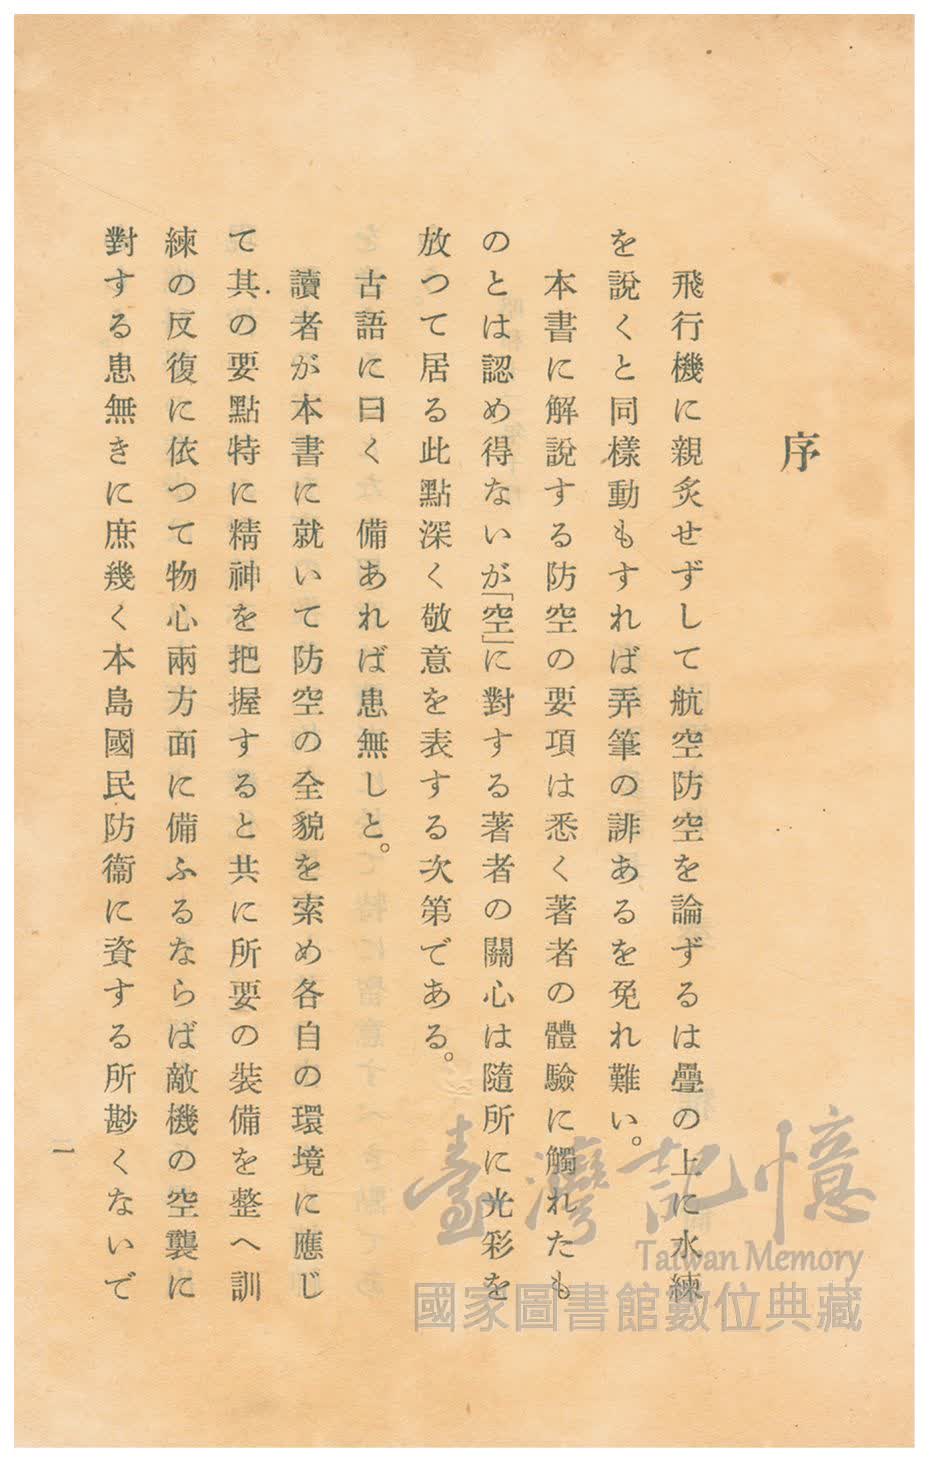 序
飛行機に親炙せずして航空防空を論ずるは疊の上に水練
を說くと同樣動もすれば弄筆の誹あるを免れ難い。
本書に解說する防空の要項は悉く著者の體驗に觸れたも
のとは認め得ないが「空」に對する著者の關心は隨所に光彩を
放つて居る此點深く敬意を表する次第である。
古語に曰くな 備あれば患無しと。
讀者が本書に就いて防空の全貌を索め各自の環境に應じ
て其の要點特に精神を把握すると共に所要の裝備を整へ訓
練の反復に依つて物心兩方面に備ふるならば敵機の空襲に
對する患無きに庶幾く本島國民防衞に資する所尠くないで
一
臺灣記憶
Taiwan Memory
國家圖書館數位典藏